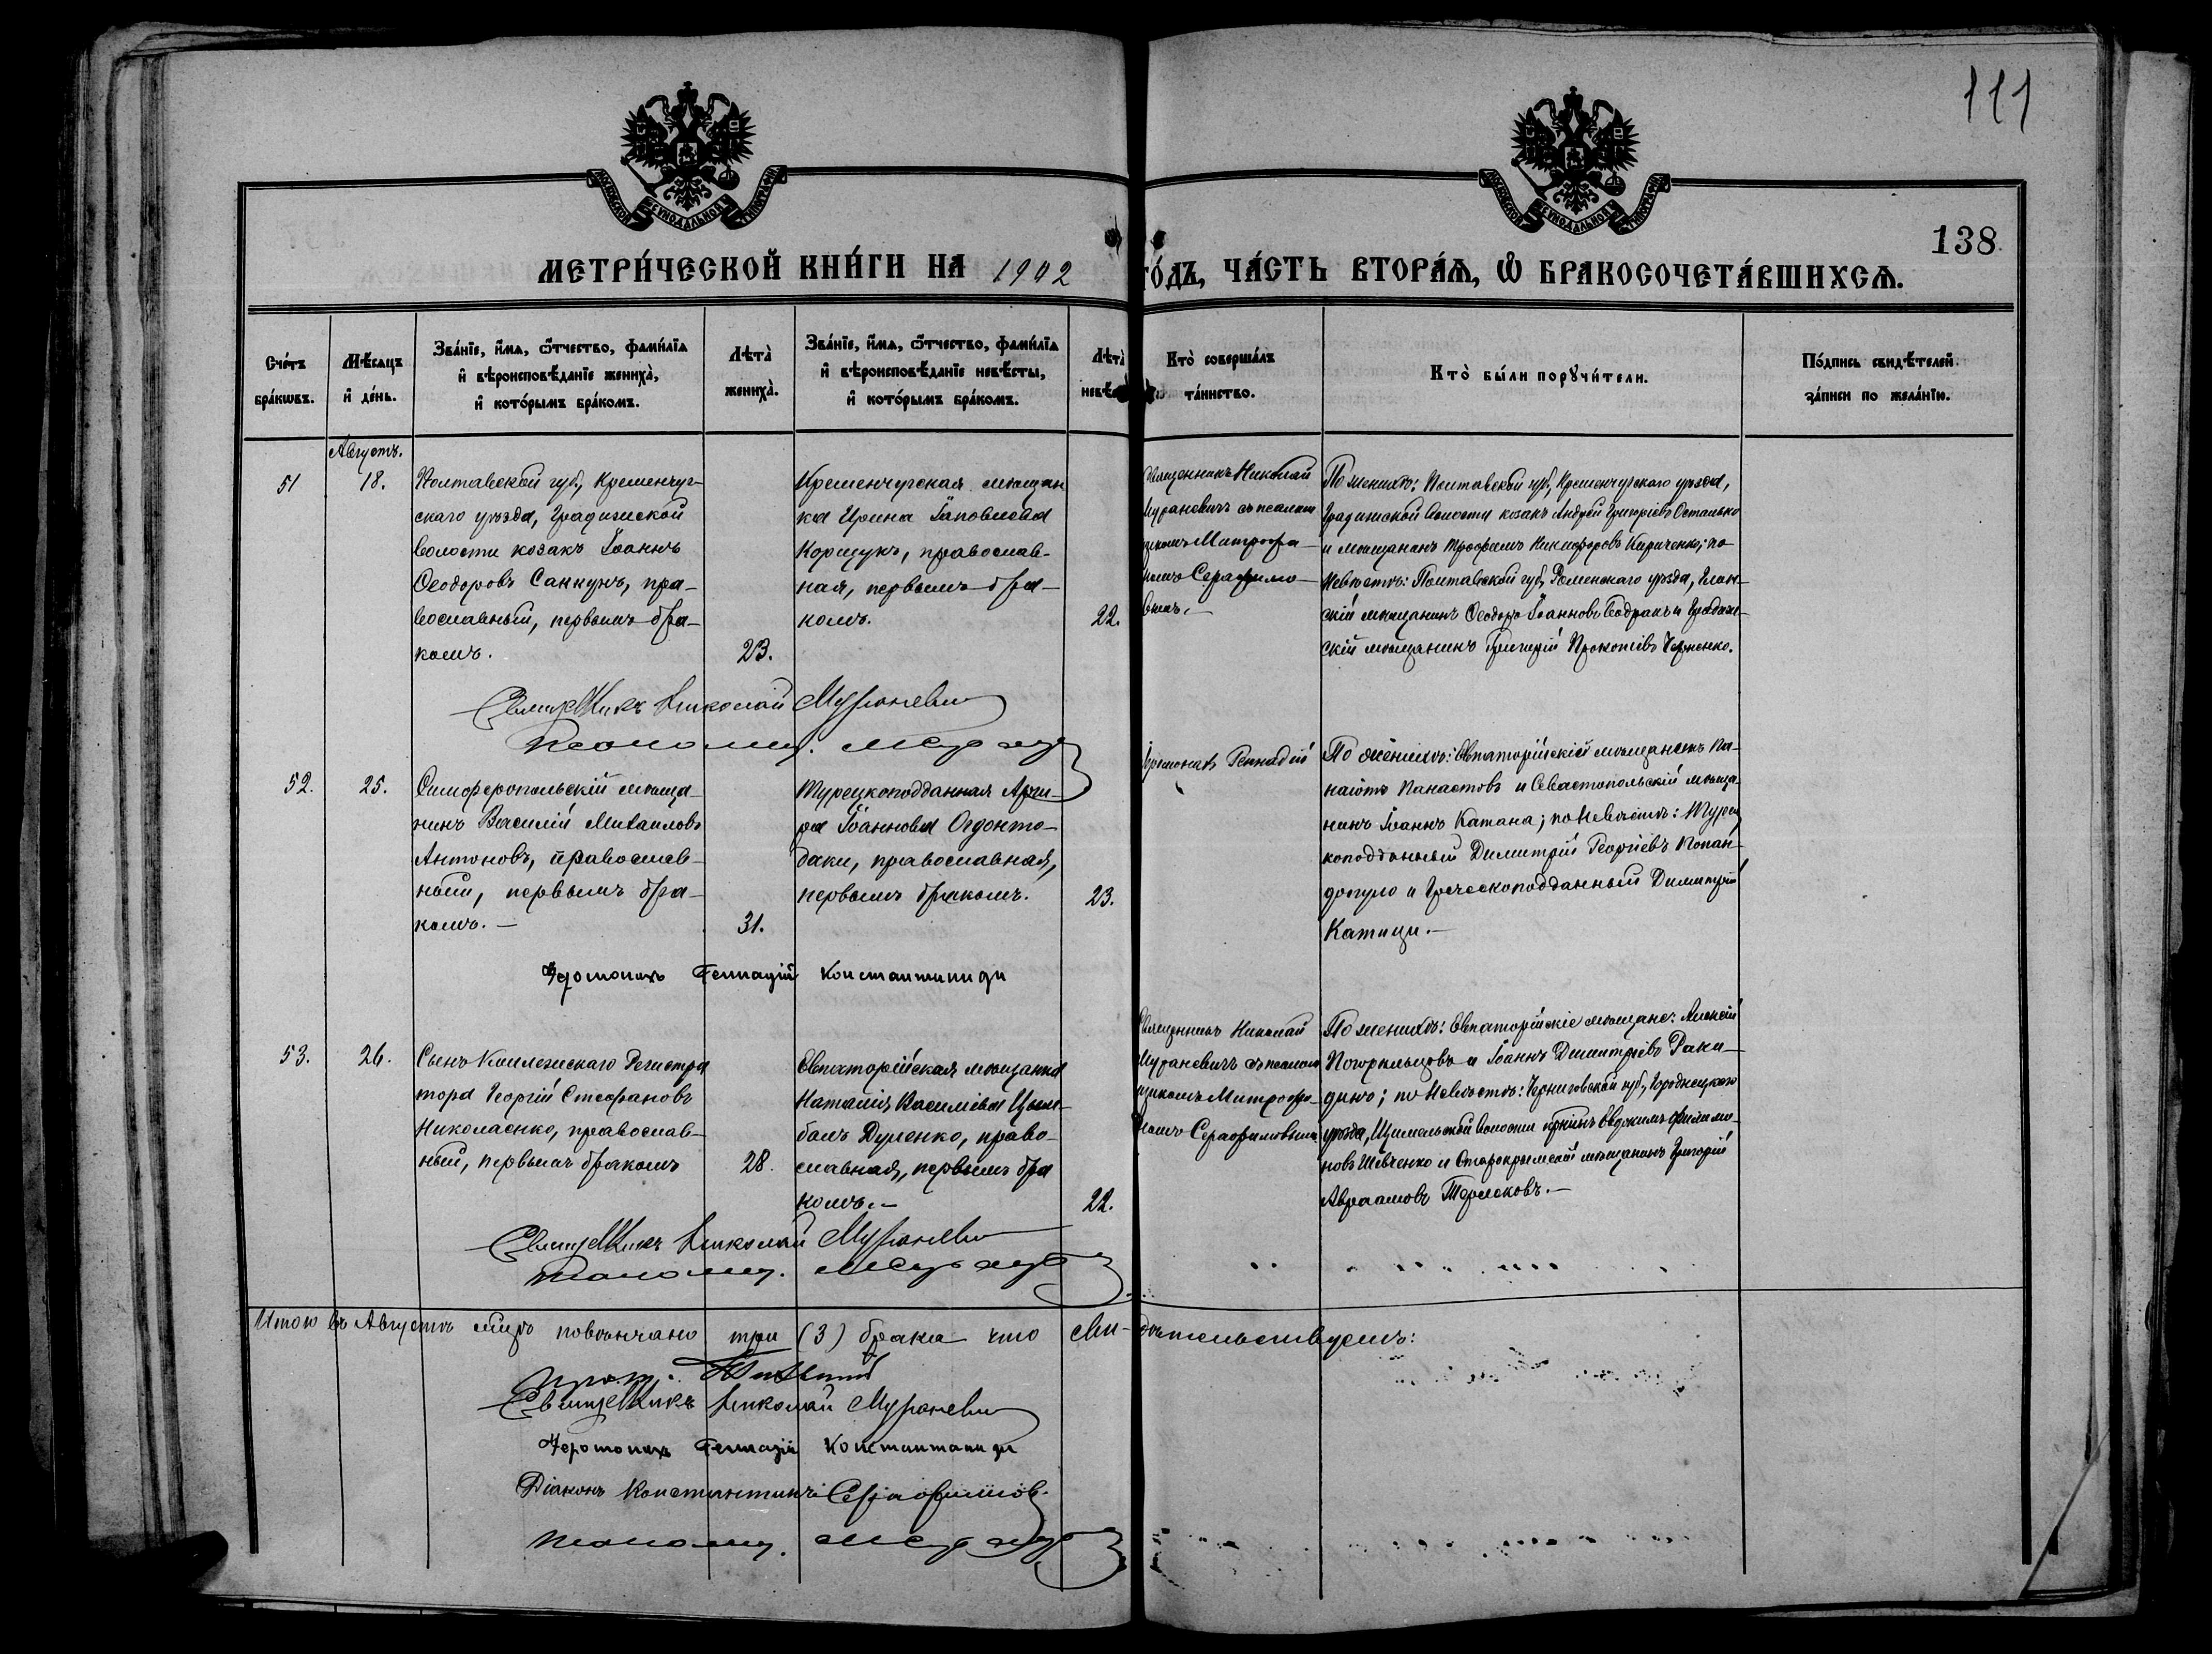 111
138
МЕТРИ́ЧЕСКОЙ КНИ́ГИ НА 1902 ГО́ДЪ, ЧА́СТЬ ВТОРА́Ѧ, Ѽ БРАКОСОЧЕТА́ВШИХСѦ.
Сче́тъ бра́кѡвъ.
Мѣ́сѧцъ и҆ де́нь.
Зва́нїе, и҆́мѧ, ѻ҆́тчество, фами́лїѧ и҆ вѣроисповѣ́данїе жениха̀, и҆ кото́рымъ бра́комъ.
Лѣта̀ жениха̀.
Зва́нїе, и҆́мѧ, ѻ҆́тчество, фами́лїѧ и҆ вѣроисповѣ́данїе невѣ́сты, и҆ кото́рымъ бра́комъ.
Лѣта̀
Кто̀ соверша́лъ та́инство.
Кто̀ бы́ли порꙋчи́тели.
По́дпись свидѣ́телей за́писи по жела́нїю.
Августъ.
51
18.
Полтавской губ., Кременчуг-
скаго уѣзда, Градижской
волости козакъ Іоаннъ
Ѳеодоровъ Саккунъ, пра-
вославный, первымъ бра-
комъ.
23.
Кременчугская мѣщан
ка Ирина Іаковлева
Корщукъ, православ-
ная, первымъ бра-
комъ.
22.
Священникъ Николай
Мураневичъ съ псалом
щикомъ Митрофа-
номъ Серафимо-
вымъ.-
По женихѣ: Полтавской губ., Кременчугскаго уѣзда,
Градижской волости козакъ Андрей Григоріевъ Осталько
и мѣщанинъ Трофимъ Никифоровъ Кириченко; по
невѣстѣ: Полтавской губ., Роменскаго уѣзда, Глин-
скій мѣщанинъ Ѳеодоръ Іоанновъ Бодракъ и Градиж-
скій мѣщанинъ Григорій Прокопіевъ Черненко.
Священникъ Николай Мураневич
52.
25.
Симферопольскій мѣща-
нинъ Василій Михаиловъ
Антоновъ, православ-
ный, первымъ бра-
комъ.-
31.
Турецкоподданная Арги-
ра Іоаннова Огдонто-
даки, православная,
первымъ бракомъ.
23.
Іеромонахъ Геннадій
По женихѣ: Евпаторійскій мѣщанинъ Па-
наіотъ Панастовъ и Севастопольскій мѣща-
нинъ Іоаннъ Катана; по невѣстѣ: Турец
коподданный Димитрій Георгіевъ Попан-
допуло и Греческоподданный Димитрій
Катици.-
Іеромонахъ Геннадій Константиниди
53.
26.
Сынъ Коллежскаго Регистра
тора Георгій Стефановъ
Николаенко, православ-
ный, первымъ бракомъ
28.
Евпаторійская мѣщанка
Наталія Василіева Цым-
балъ Дуленко, право-
славная, первымъ бра
комъ.-
22.
Священникъ Николай
Мураневичъ съ псалом
щикомъ Митрофа-
номъ Серафимовымъ
По женихѣ: Евпаторійскіе мѣщане: Алексій
Погорѣльцовъ и Іоаннъ Димитріевъ Раки-
динъ; по невѣстѣ: Черниговской губ., Городнецкаго
уѣзда, волости кр-нинъ Евдокимъ Филимо-
новъ Шевченко и Старокрымскій мѣщанинъ Григорій
Авраамовъ Терлековъ.-
Священникъ Николай Мураневич
Итого въ Августѣ мѣсяцѣ повѣнчано три (3) брака что сви-дѣтельствуемъ:
Прот.
Священникъ Николай Мураневич
Іеромонахъ Геннадій Константиниди
Діаконъ Константинъ Серафимов.